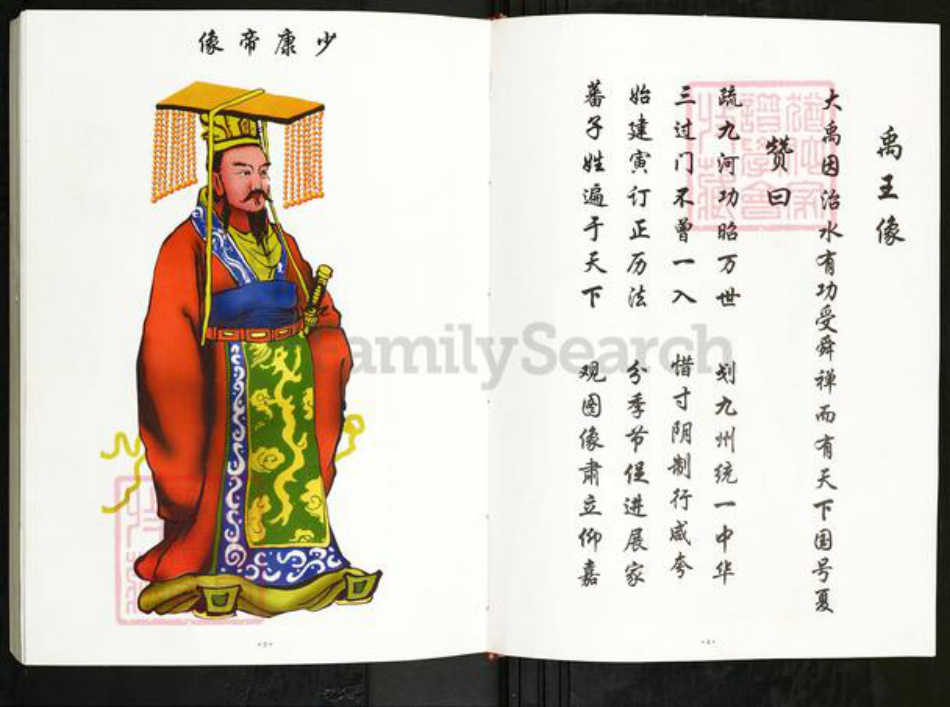 禹王像
大禹因治水有功受舜禅而有天下国号夏
赞曰
疏九河功昭万世 划九州统一中华
三过门不曾一入 惜寸阴制行咸夸
始建寅订正历法 分季节促进展家
蕃子姓遍于天下 观图像肃立仰嘉
少康帝像
FamilySearch